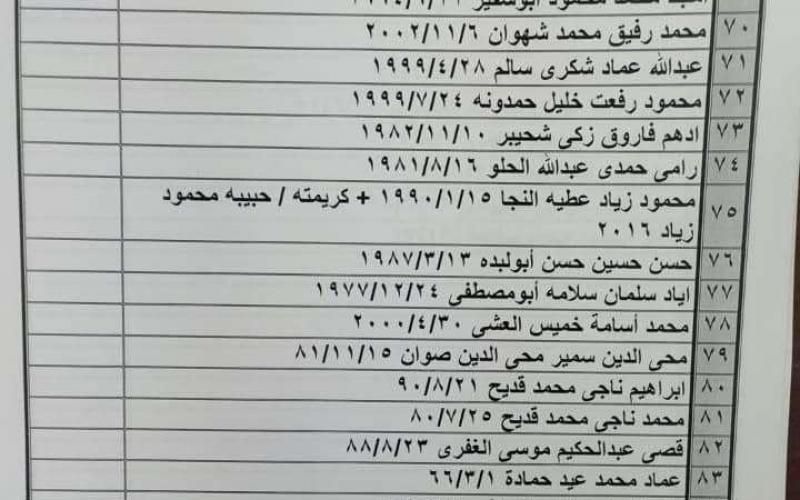 ٧٠ محمد رفيق محمد شهوان ٢٠٠٢/١١/٦
٧١ عبدالله عماد شكرى سالم ١٩٩٩/٤/٢٨
٧٢ محمود رفعت خليل حمدونه ١٩٩٩/٧/٢٤
٧٣ ادهم فاروق زكى شحيبر ١٩٨٢/١١/١٠
٧٤ رامى حمدى عبدالله الحلو ١٩٨١/٨/١٦
٧٥ محمود زياد عطيه النجا ١٩٩٠/١/١٥ + كريمته / حبيبه محمود
زياد ٢٠١٦
٧٦ حسن حسين حسن أبولبده ١٩٨٧/٣/١٣
٧٧ اياد سلمان سلامه أبومصطفى ١٩٧٧/١٢/٢٤
٧٨ محمد أسامة خميس العشى ٢٠٠٠/٤/٣٠
٧٩ محى الدين سمير محى الدين صوان ٨١/١١/١٥
٨٠ ابراهيم ناجى محمد قديح ٩٠/٨/٢١
٨١ محمد ناجى محمد قديح ٨٠/٧/٢٥
٨٢ قصى عبدالحكيم موسى الغفرى ٨٨/٨/٢٣
٨٣ عماد محمد عيد حمادة ٦٦/٣/١